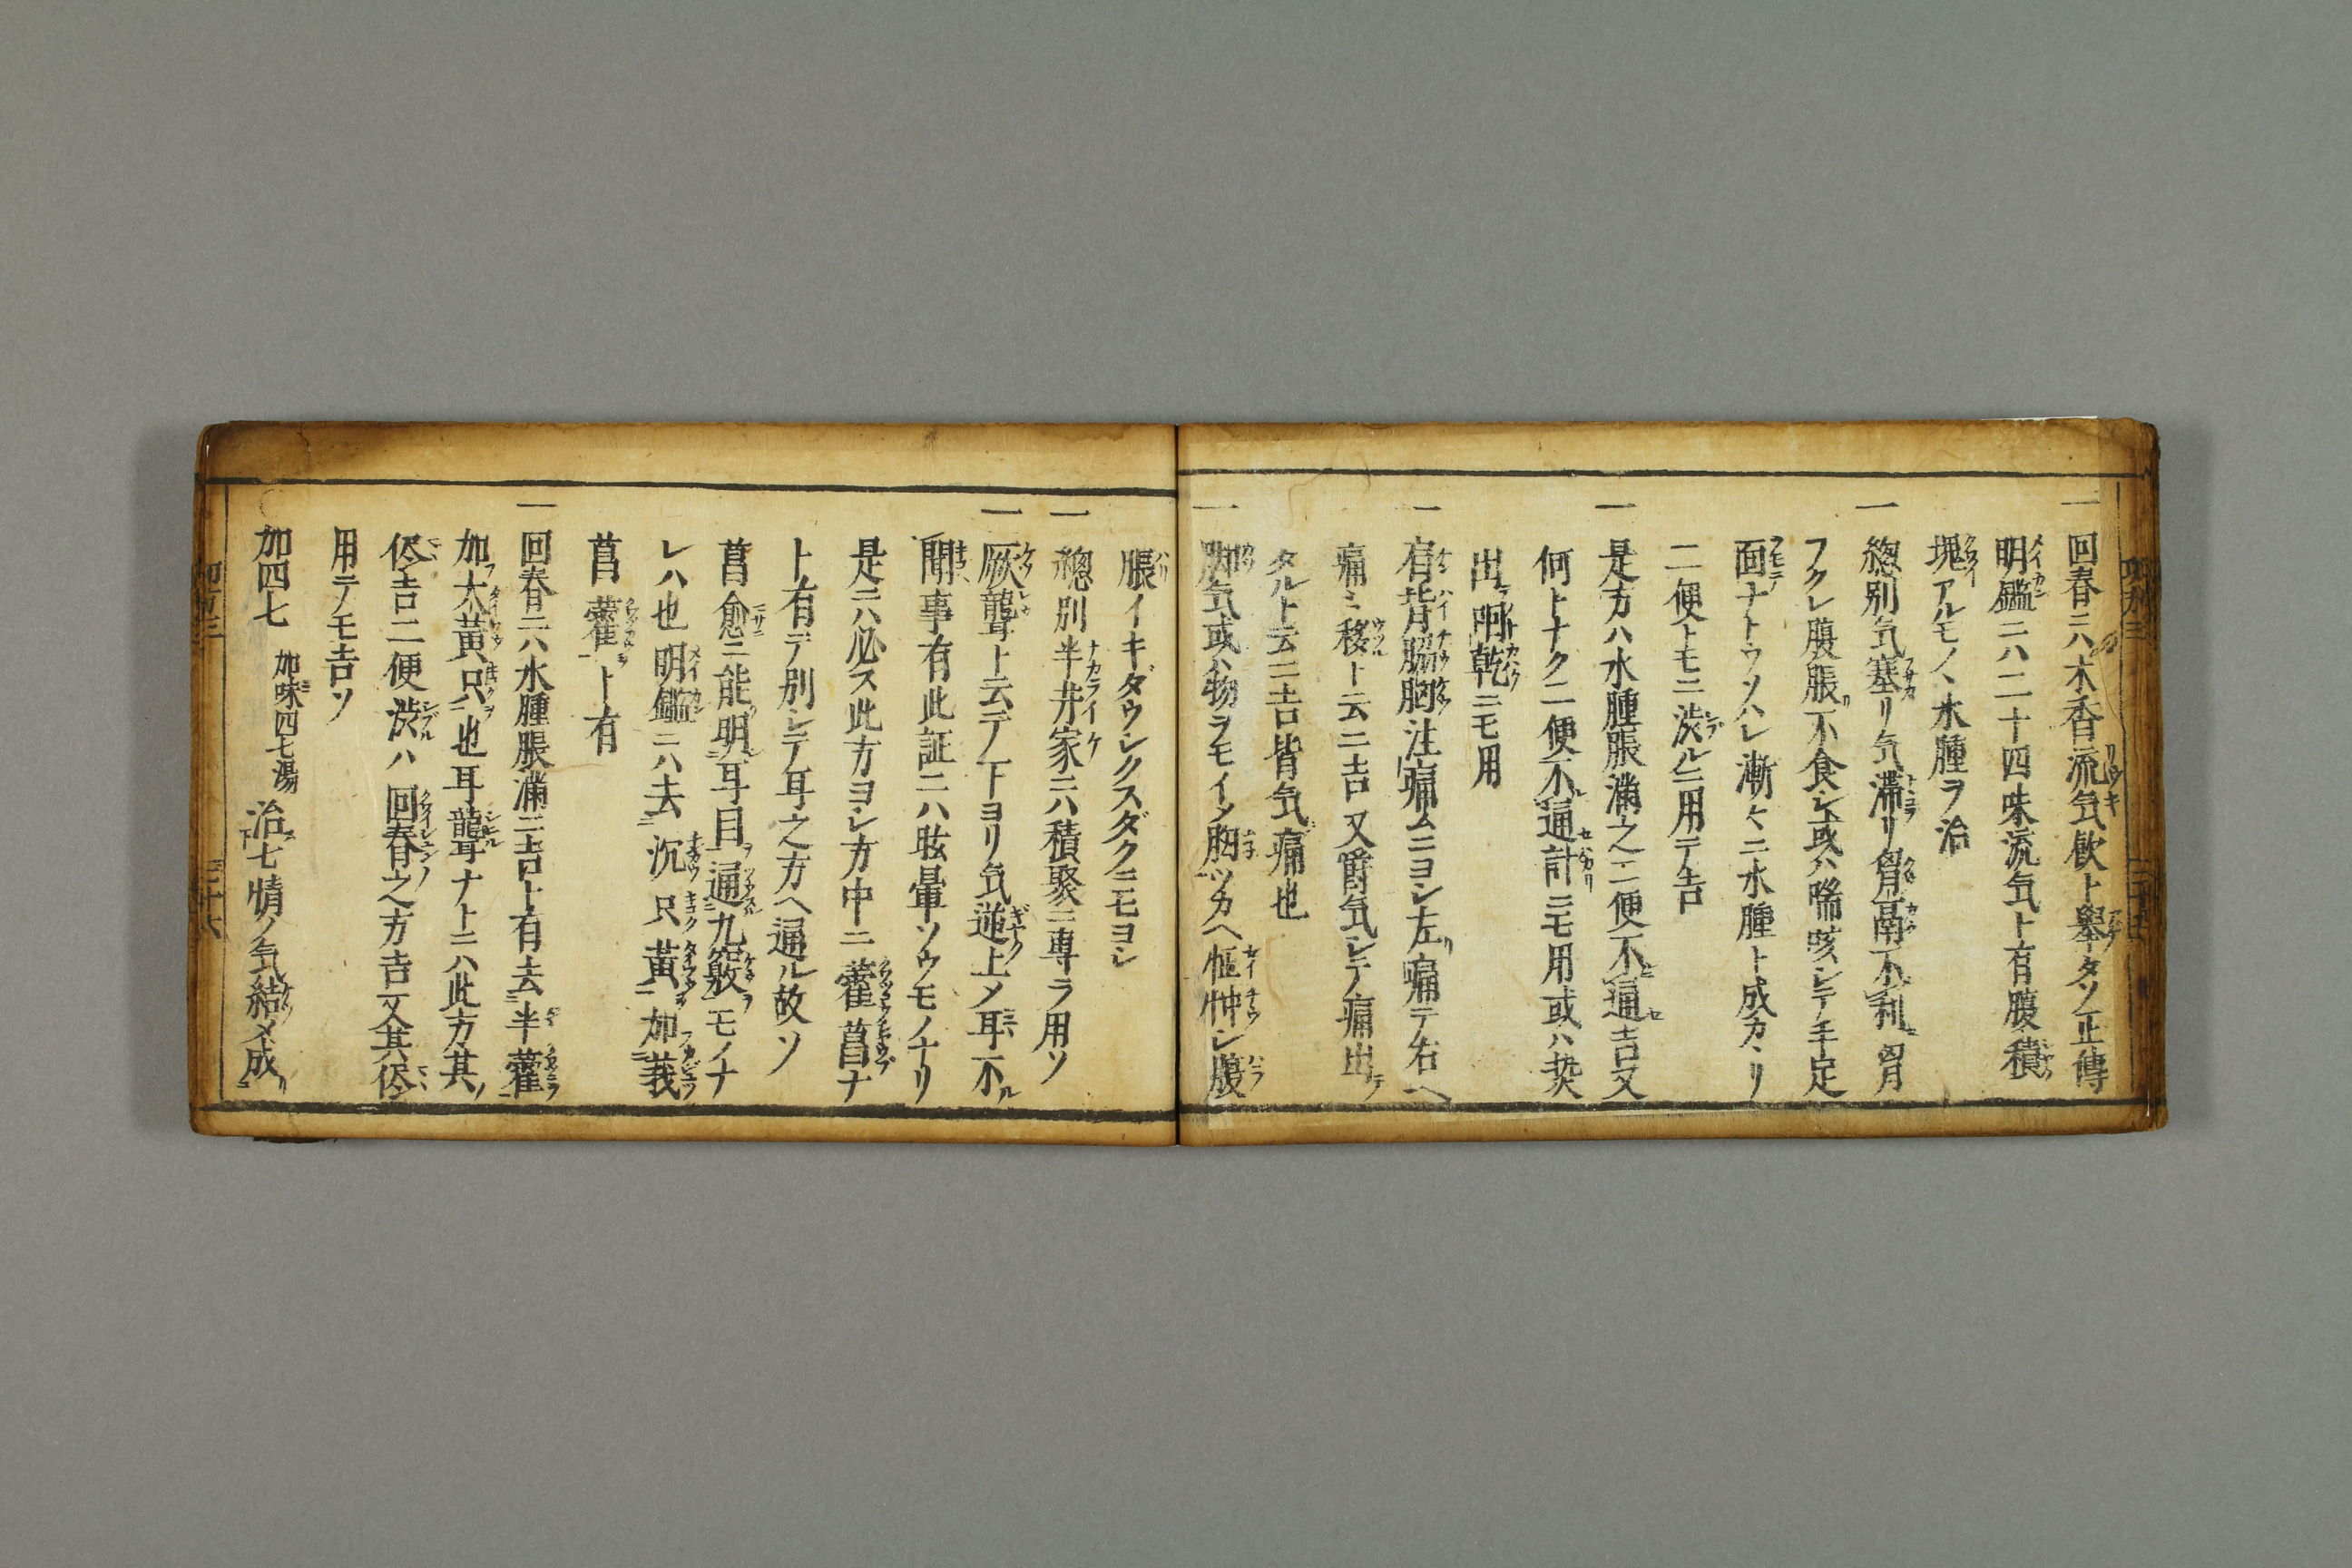 一回春ニハ木香流気飲ト挙タソ正傳
明鑑ニハ二十四味流気ト有腹積
塊アルモノヽ水腫ヲ治
一總別気塞リ気滞リ胷膈不利胷
フクレ腹脹不食シ或ハ喘咳シテ手足
面ナトウソハレ漸々ニ水腫ト成カヽリ
二便トモニ渋ルニ用テ吉
一是方ハ水腫脹満之二便不通吉又
何トナク二便不通計ニモ用或ハ
出呵乾ニモ用
一肩背脇胸注痛ムニヨシ左痛テ右ヘ
痛ミ移ト云ニ吉又爵気シテ痛出
タルト云ニ吉皆気痛也
一脚気或ハ物ヲモイメ胸ツカヘ怔忡シ腹
脹イキダウシクスダクニモヨシ
一總別半井家ニハ積聚ニ専ラ用ソ
一厥聾ト云テ下ヨリ気逆上メ耳不
聞事有此証ニハ眩暈ソウモノナリ
是ニハ必ス此方ヨシ方中ニ藿菖ナ
ト有テ別シテ耳之方ヘ通ル故ソ
菖愈ニ能明耳目通九竅モノナ
レハ也明鑑ニハ去沉只黄加莪
菖藿ト有
一回春ニハ水腫脹満ニ吉ト有去半藿
加大黄只也耳聾ナトニハ此方其
侭吉二便渋ハ回春之方吉又其侭
用テモ吉ソ
加四七 加味四七湯 治七情ノ気結メ成